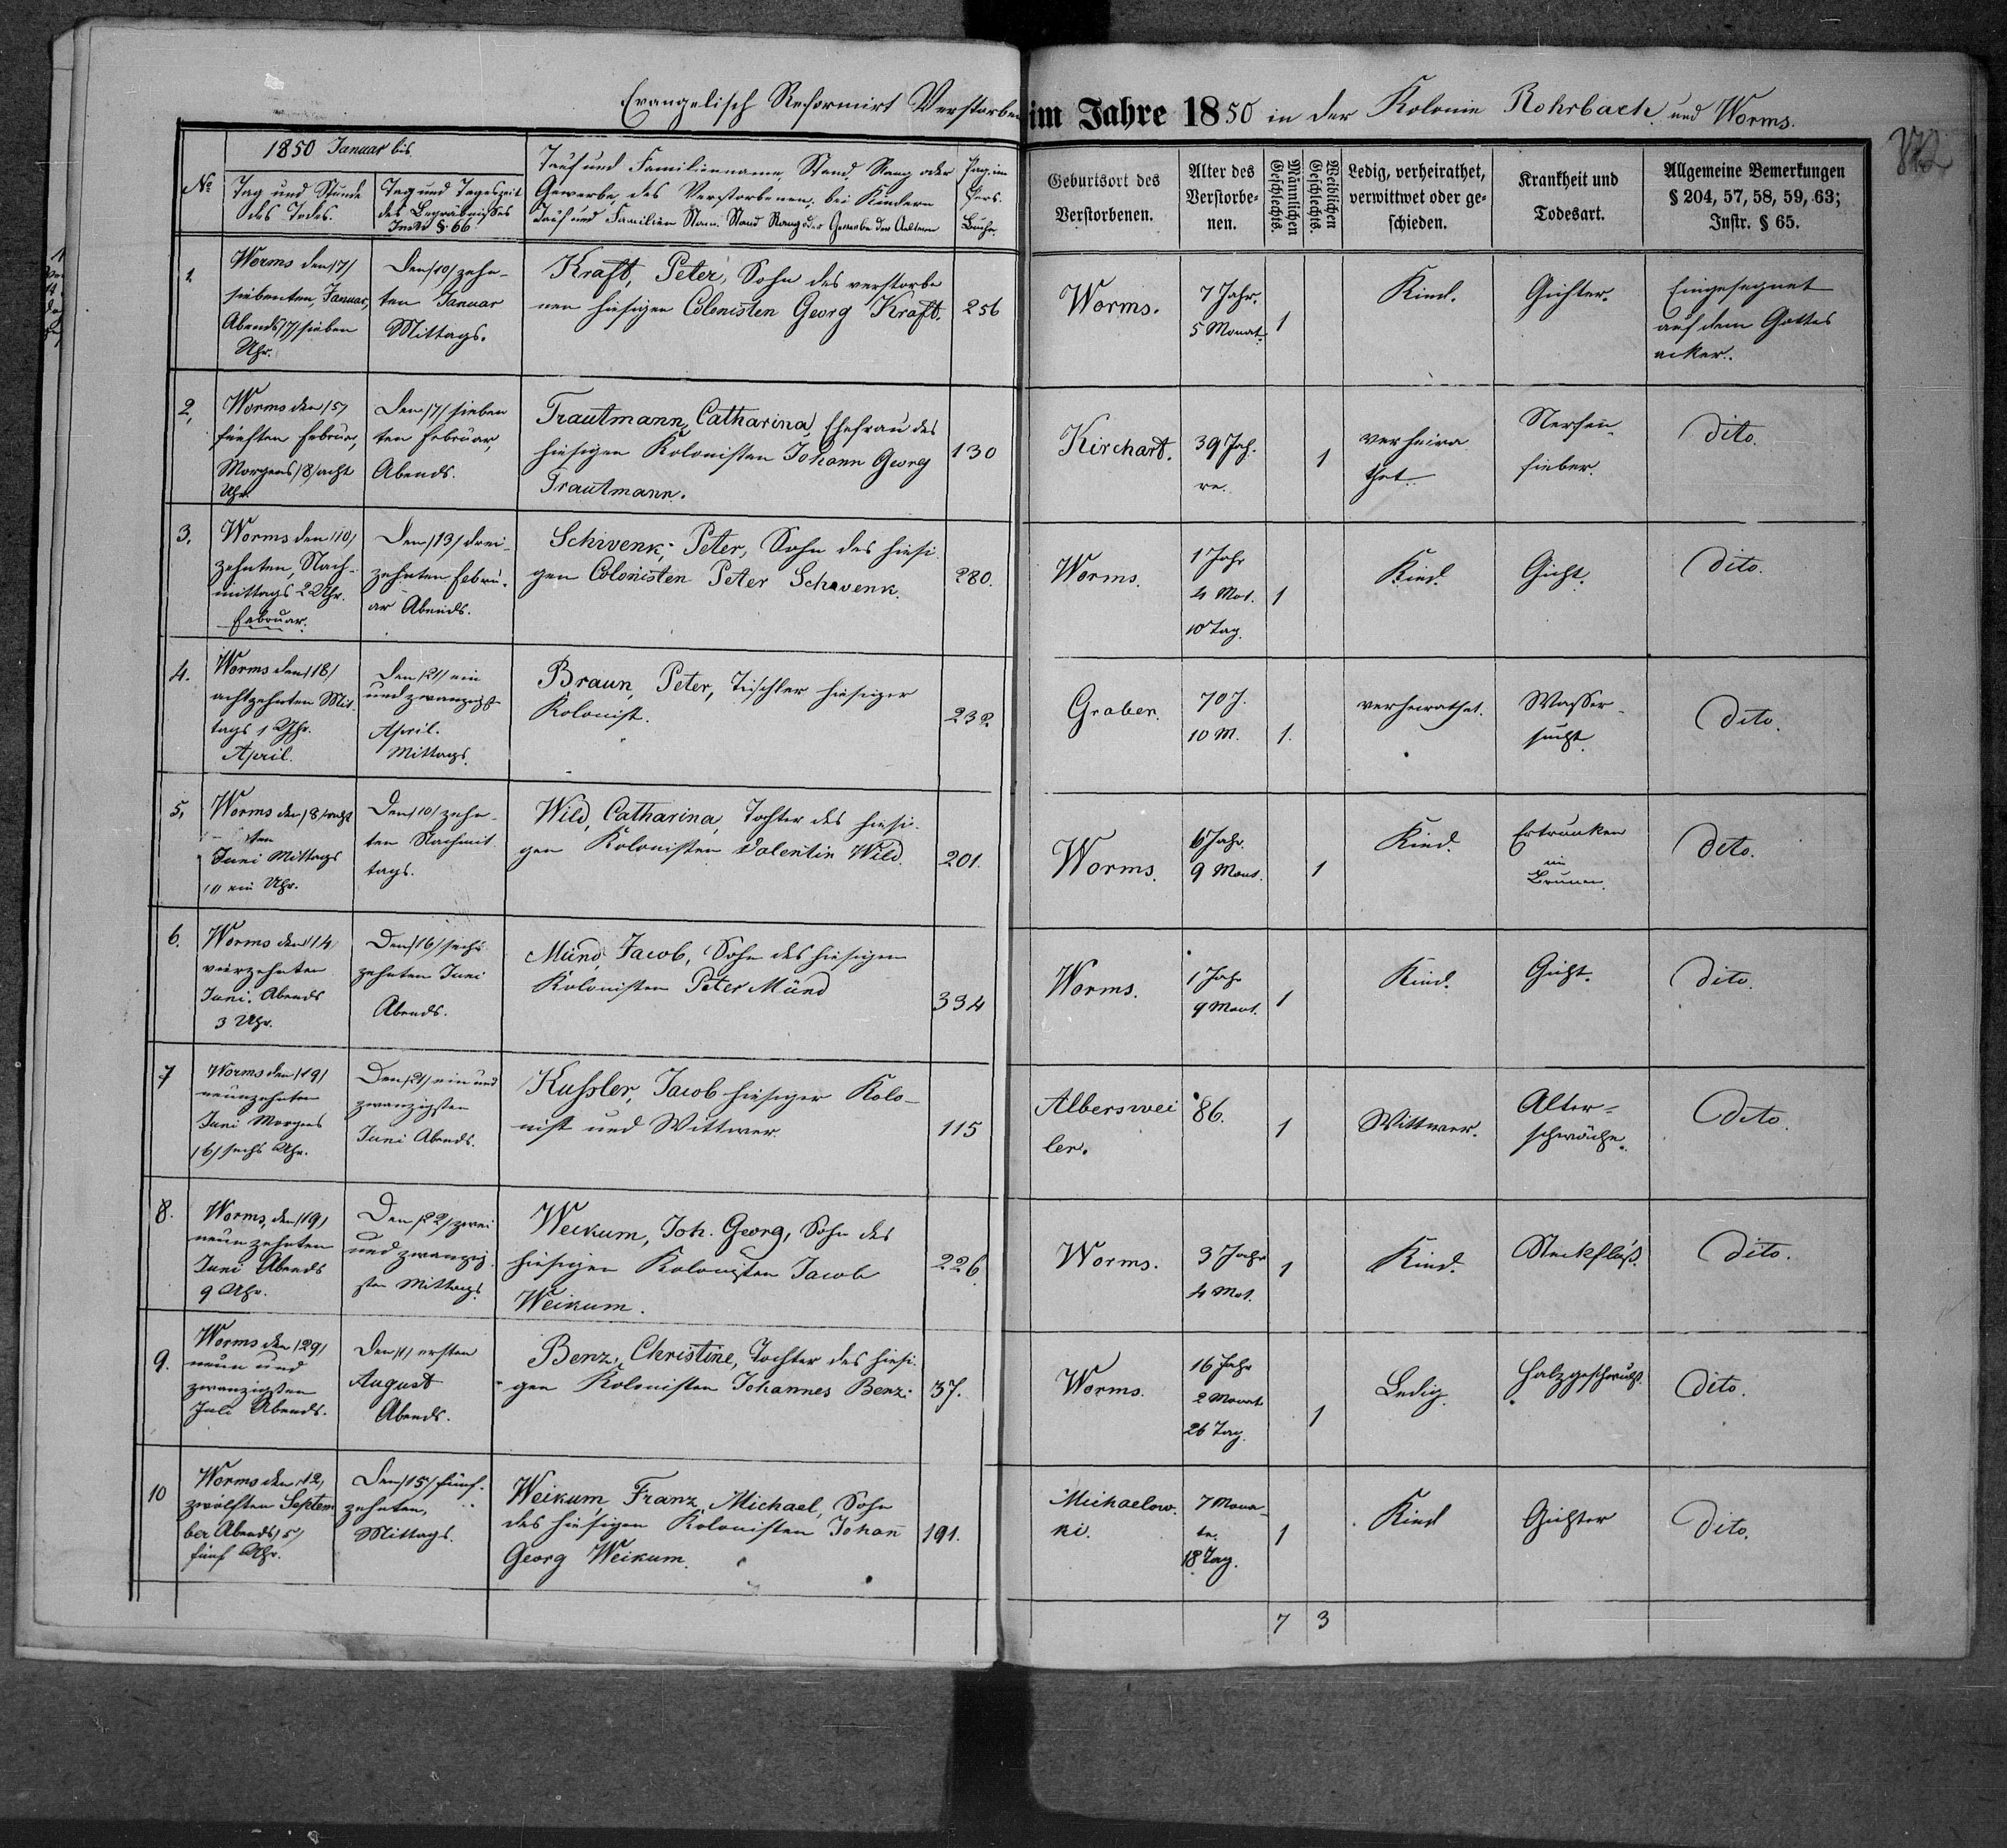 Evangelisch Reformirt Verstorben im Jahre 1850 in der Kolonie Rohrbach und Worms.
1850 Januar bis
№
Tag und Stunde
des Todes.
Tag und Tageszeit
des Begräbnißes
Instr. §. 66
Tauf und Familienname, Stand, Rang oder
Gewerbe, des Verstorbenen, bei Kindern
Tauf und Familien Nam. Stand Rang oder Gewerbe der Aeltern
Pag. im
Pers.
Buche.
Geburtsort des
Verstorbenen.
Alter des
Verstorbe-
nen.
Männlichen
Geschlechts.
Weiblichen
Geschlechts.
Ledig, verheirathet,
verwittwet oder ge-
schieden.
Krankheit und
Todesart.
Allgemeine Bemerkungen
§ 204, 57, 58, 59, 63;
Instr. § 65.
1
Worms den /7/
siebenten, Januar,
Abends /7/ sieben
Uhr.
Den /10/ zehn-
ten Januar
Mittags.
Kraft, Peter, Sohn des verstorbe
nen hiesigen Colonisten Georg Kraft.
256
Worms.
7 Jahr.
5 Monat.
1
Kind.
Gichter.
Eingesegnet
auf dem Gottes
acker.
2,
Worms den /5/
fünften Februar,
Morgens /8/ acht
Uhr.
Den /7/ sieben
ten Februar,
Abends.
Trautmann, Catharina, Ehefrau des
hiesigen Kolonisten Johann Georg
Trautmann.
130
Kirchart.
39 Jah.
re.
1
verheira
thet.
Nerfen-
fieber.
dito.
3.
Worms den /10/
zehnten, Nach-
mittags 2 Uhr.
Februar.
Den /13/ drei-
zehnten Febru-
ar Abends.
Schwenk, Peter, Sohn des hiesi.
gen Colonisten Peter Schwenk.
280.
Worms.
1 Jahr
4 Mot.
10 Tag.
1
Kind.
Gicht.
dito.
4.
Worms den /18/
achtzehnten Mit.
tags 1 Uhr.
April.
Den /21/ ein
und zwanzigst
April.
Mittags.
Braun, Peter, Tischler hiesiger
Kolonist.
232
Graben.
70 J.
10 M.
1.
verheirathet.
Wasser-
sucht.
dito.
5,
Worms den /8/ acht
ten
Juni Mittags
/1/ ein Uhr.
Den /10/ zehn-
ten Nachmit.
tags.
Wild, Catharina, Tochter des hiesi-
gen Kolonisten Valentin Wild.
201.
Worms.
6 Jahr.
9 Mont.
1
Kind.
Ertrunken
im
Brunnen.
dito.
6.
Worms den /14/
vierzehnten
Juni. Abends
3 Uhr.
Den /16/ sechs
zehnten Juni
Abends.
Münd, Jacob, Sohn des hiesigen
Kolonisten Peter Münd
334
Worms.
1 Jahr
9 Mont.
1
Kind.
Gicht.
dito.
7
Worms den /19/
neunzehnten
Juni Morgens
/6/ sechs Uhr.
Den /21/ ein und
zwanzigsten
Juni Abends.
Kußler, Jacob hiesiger Kolo-
nist und Wittwer.
115
Alberswei
ler.
86.
1
Wittwer.
Alter-
schwäche.
dito.
8.
Worms, den /19/
neunzehnten
Juni Abends
9 Uhr.
Den /22/ zwei
und zwanzig.
sten Mittags.
Weikum, Joh. Georg, Sohn des
hiesigen Kolonisten Jacob
Weikum.
226
Worms.
3 Jahr
4 Mot.
1
Kind.
Steckfluß.
dito.
9.
Worms den /29/
neun und
zwanzigsten
Juli Abends.
Den /1/ ersten
August
Abends.
Benz, Christine, Tochter des hiesi.
gen Kolonisten Johannes Benz.
37.
Worms.
16 Jahr
2 Monat
26 Tag.
1
Ledig.
Halzgeschwulst.
dito.
10
Worms den /12/
zwölften Septem
ber Abends /5/
fünf Uhr.
Den /15/ fünf-
zehnten,
Mittags.
Weikum, Franz Michael, Sohn
des hiesigen Kolonisten Johan̄
Georg Weikum.
191.
Michaelow.
ki.
7 Mona-
te.
18 Tag.
1
Kind
Gichter
dito.
7
3